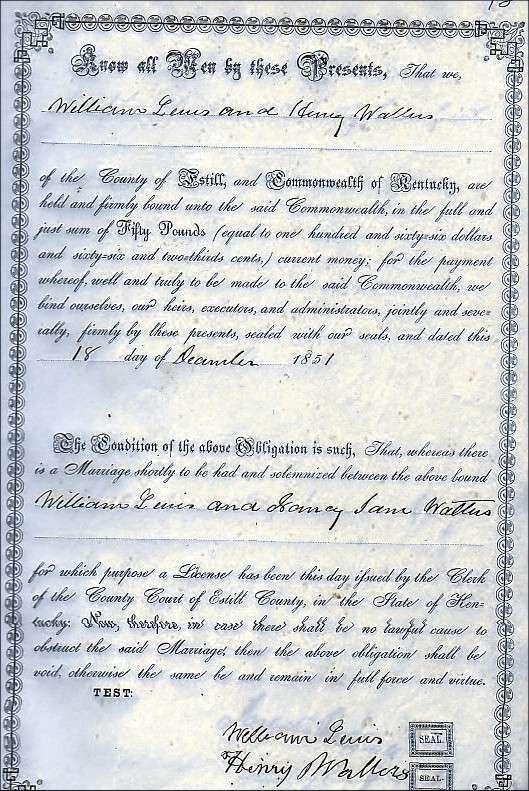 Know all Men by these Presents, That we,
William Lewis and Henry Watters
of the County of Estill, and Commonwealth of Kentucky, are
held and firmly bound unto the said Commonwealth, in the full and
just sum of Fifty Pounds (equal to one hundred and sixty-six dollars
and sixty-six and two-thirds cents,) current money; for the payment
whereof, well and truly to be made to the said Commonwealth, we
bind ourselves, our heirs, executors, and administrators, jointly and seve-
rally, firmly by these presents, sealed with our seals, and dated this
18 day of December 1851
The Condition of the above Obligation is such, That, whereas there
is a Marriage shortly to be had and solemnized between the above bound
William Lewis and Nancy Jane Watters
for which purpose a License has been this day issued by the Clerk
of the County Court of Estill County, in the State of Ken-
tucky: Now, therefore, in case there shall be no lawful cause to
obstruct the said Marriage, then the above obligation shall be
void, otherwise the same be and remain in full force and virtue.
TEST:
William Lewis SEAL.
Henry Watters SEAL.